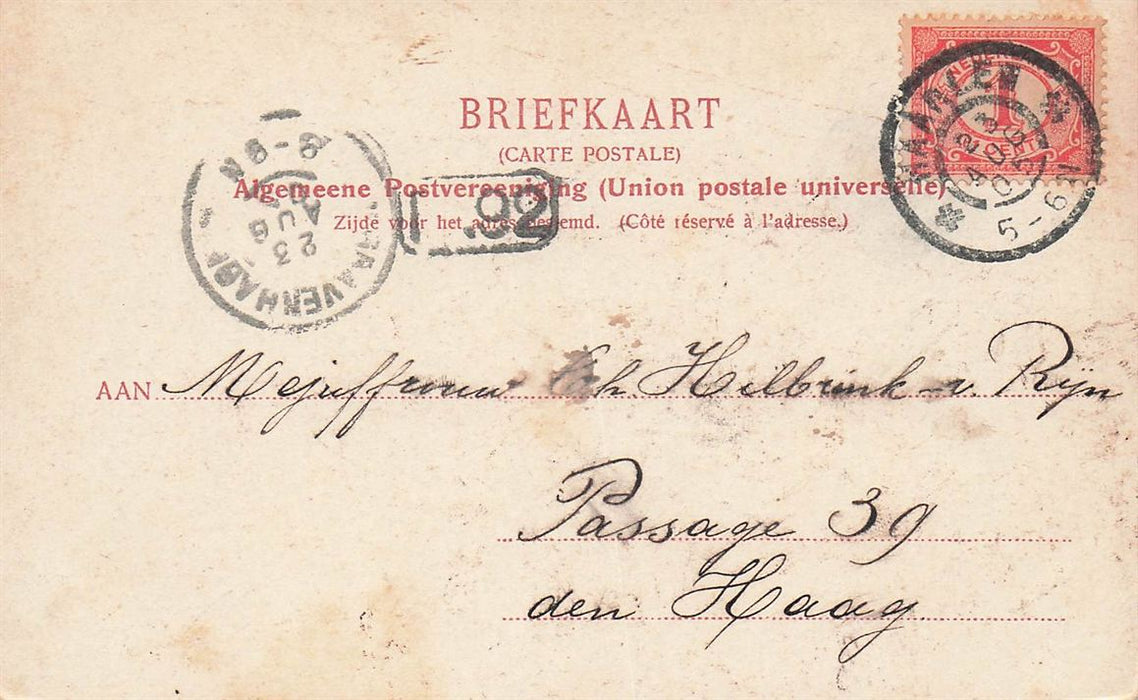 BRIEFKAART
(CARTE POSTALE)
Algemeene Postvereeniging (Union postale universelle)
Zijde voor het adres bestemd. (Côté réservé à l'adresse.)
NEDERLAND
1
CENT
HAARLEM
5-6
'S GRAVENHAGE
23
AUG
8-9 N
AAN Mejuffrouw Hilbrink-v. Rijn
Passage 39
den Haag